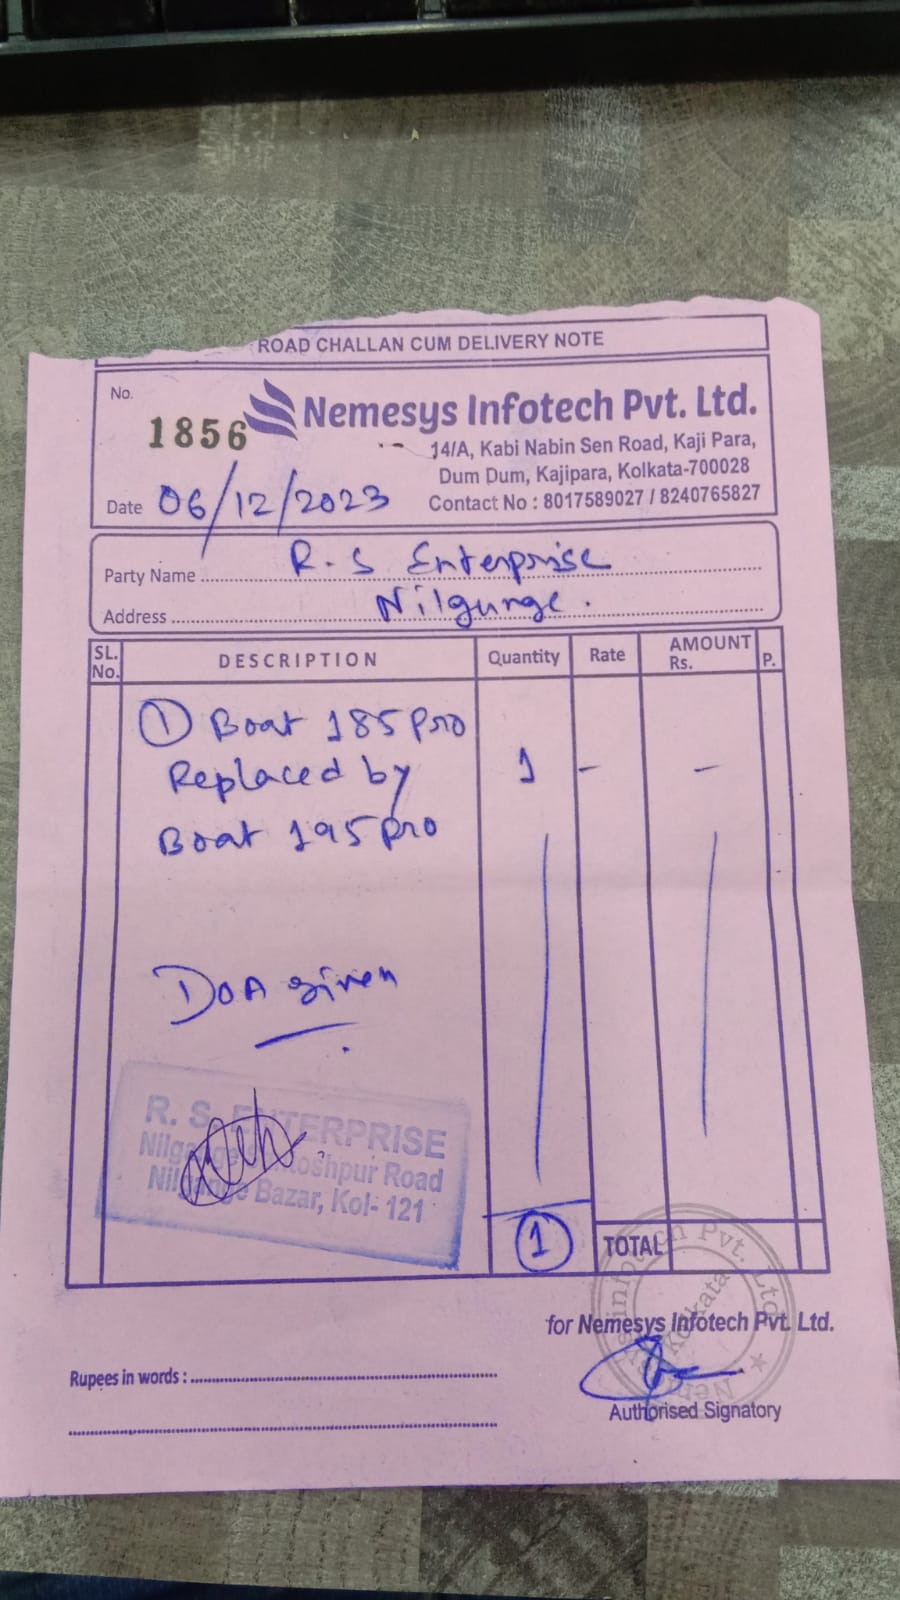 ROAD CHALLAN CUM DELIVERY NOTE
No.
1856
Nemesys Infotech Pvt. Ltd.
14/A, Kabi Nabin Sen Road, Kaji Para,
Dum Dum, Kajipara, Kolkata-700028
Contact No : 8017589027 / 8240765827
Date 06/12/2023
Party Name R.S Enterprise
Address Nilgunge.
SL. No. DESCRIPTION Quantity Rate AMOUNT Rs. P.
① Boat 185 Pro
Replaced by 1 - -
Boat 195 pro
DOA given
R. S. ENTERPRISE
Road
Bazar, Kol- 121
1 TOTAL
for Nemesys Infotech Pvt. Ltd.
Nemesys Infotech Pvt. Ltd.
Kolkata
Rupees in words :
Authorised Signatory